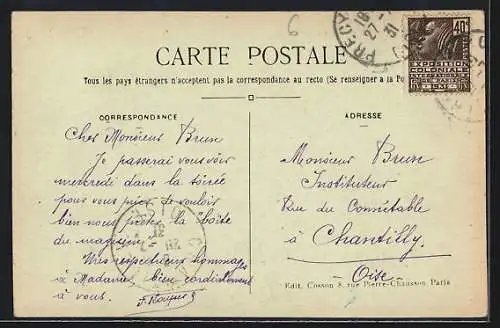 6
CARTE POSTALE
Tous les pays étrangers n'acceptent pas la correspondance au recto (Se renseigner à la Po
40c
EXPOSITION
COLONIALE
INTERNATIONALE
PARIS
1931
PRECY
18
27
31
CORRESPONDANCE
Cher Monsieur Brun
Je passerai vous voir
mercredi dans la soirée
pour vous prier de vouloir
bien nous prêter la boîte
du magasin
Mes respectueux hommages
à Madame, bien cordialement
à vous.
ADRESSE
Monsieur Brun
Instituteur
Rue du Connétable
à Chantilly
Oise
Edit. Cosson 8, rue Pierre-Chausson Paris